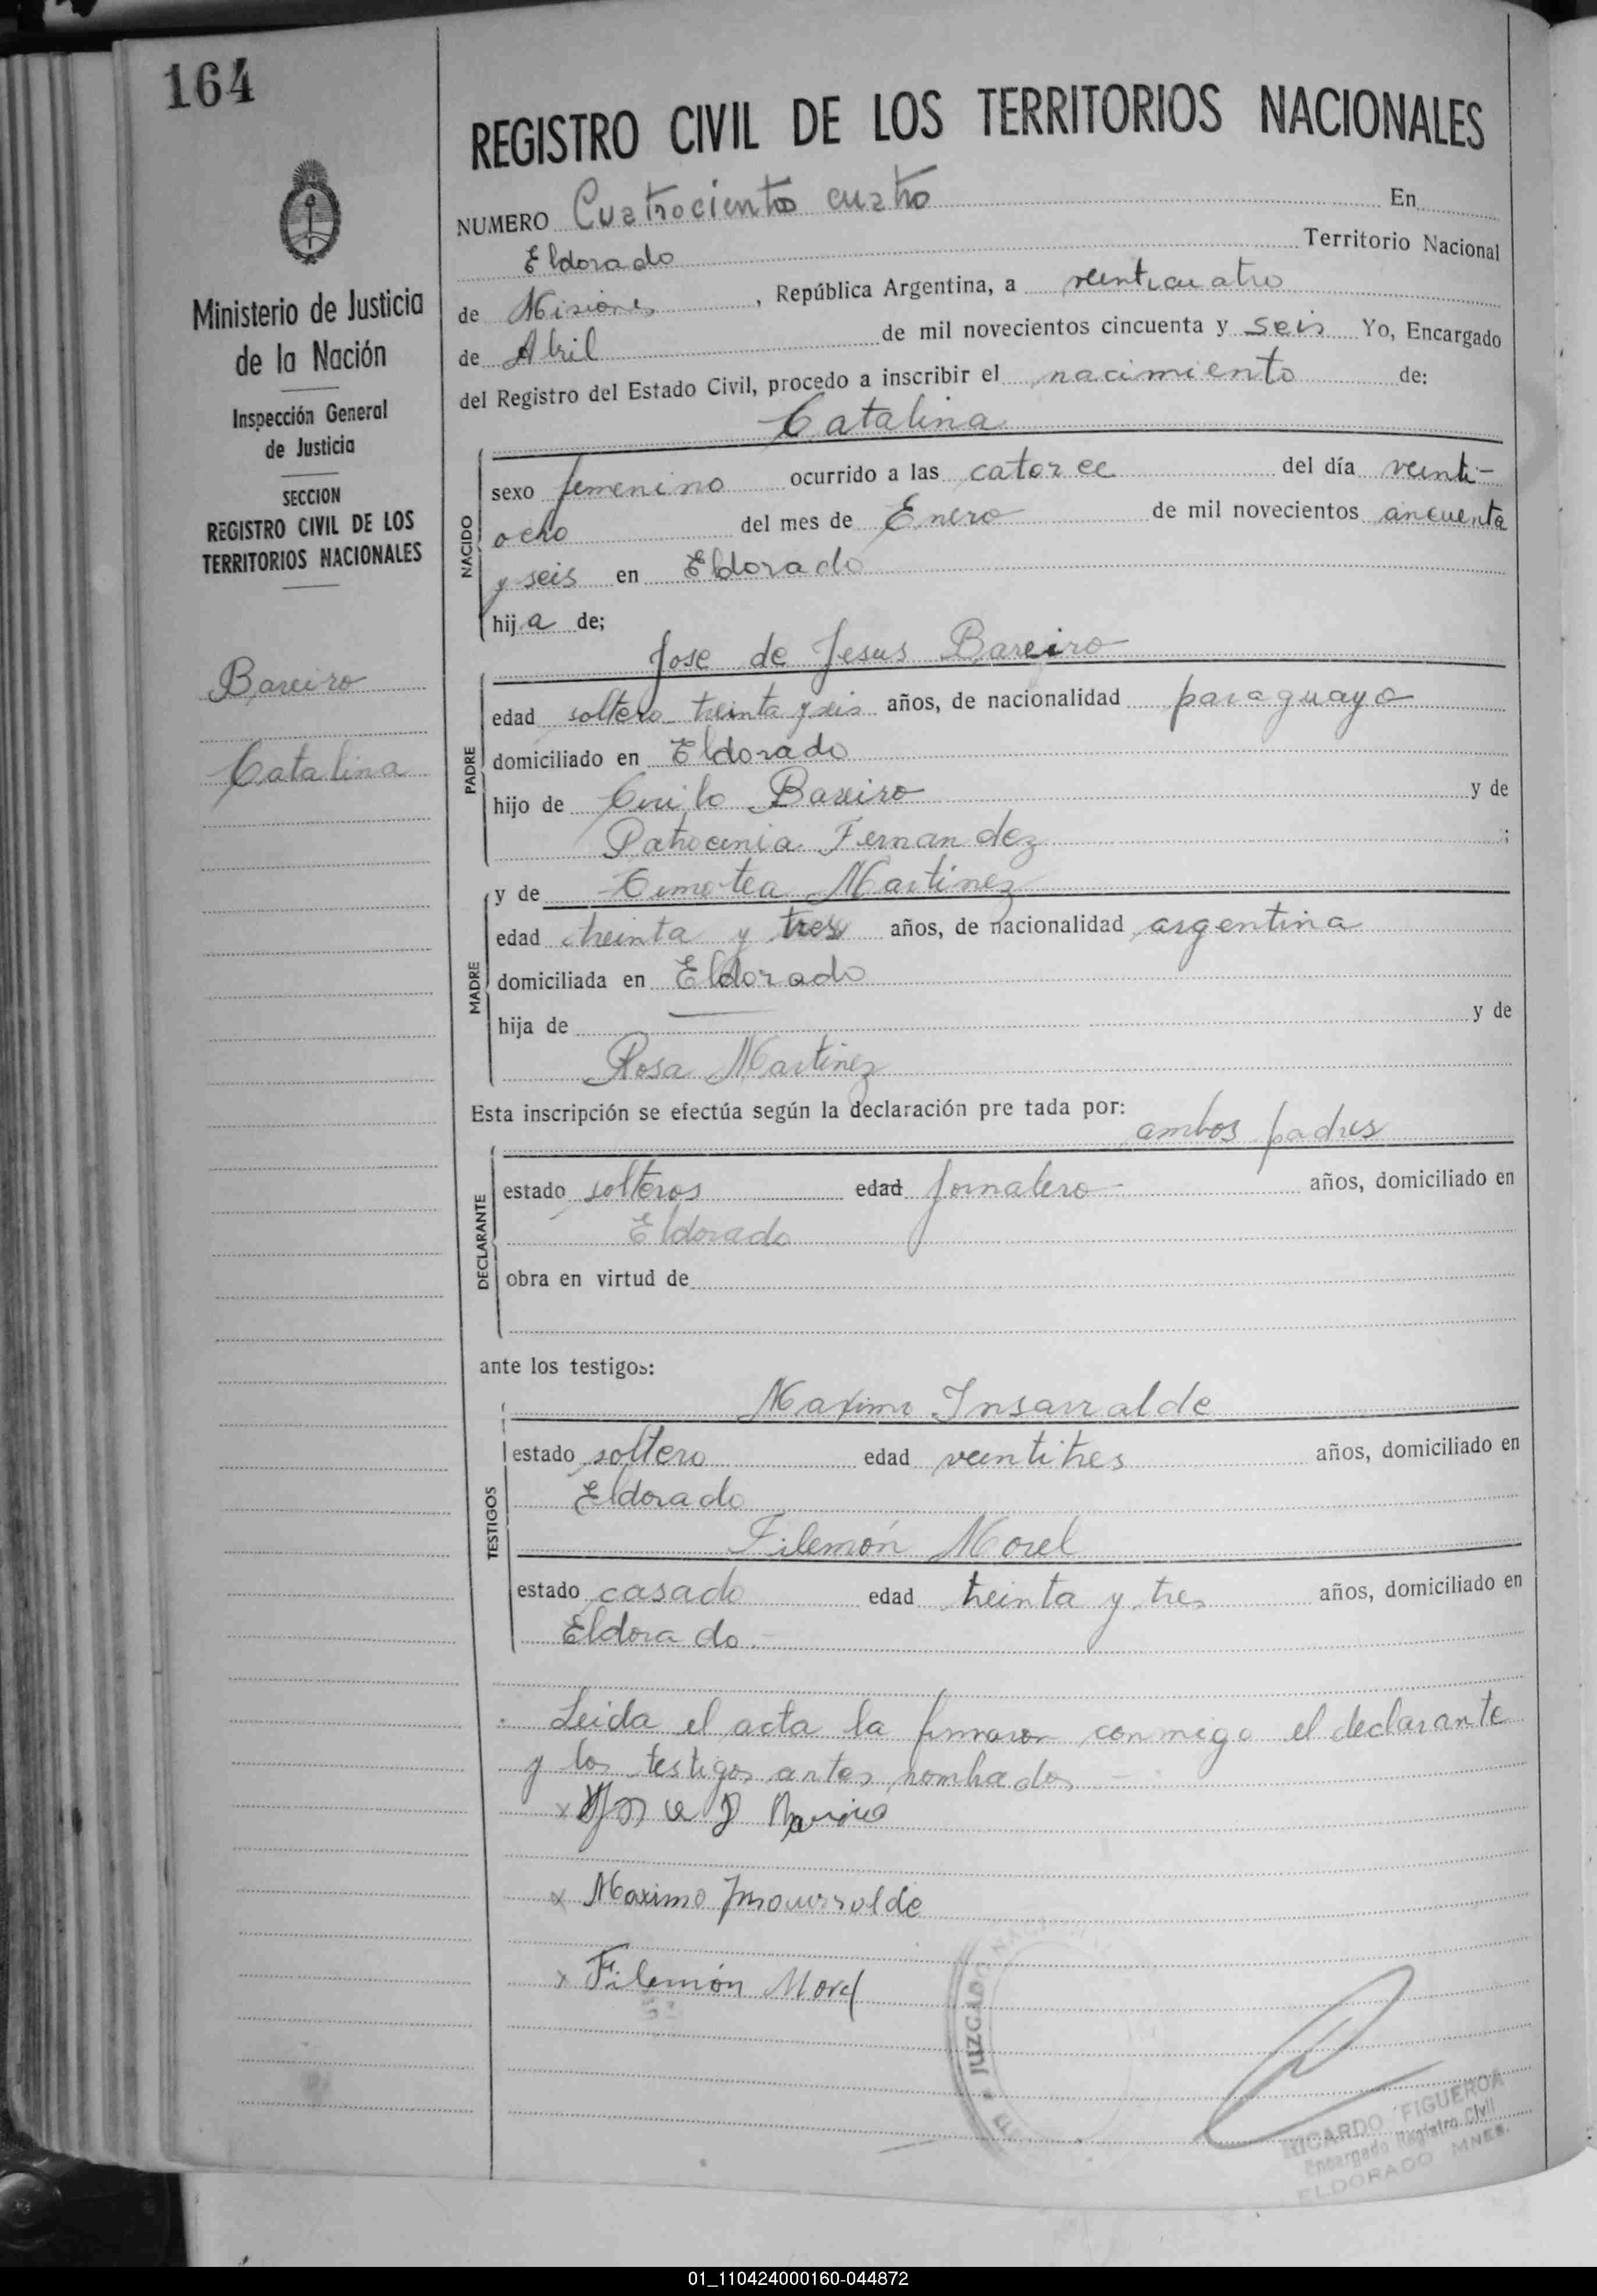 164
REGISTRO CIVIL DE LOS TERRITORIOS NACIONALES
Ministerio de Justicia
de la Nación
Inspección General
de Justicia
SECCION
REGISTRO CIVIL DE LOS
TERRITORIOS NACIONALES
Bareiro
Catalina
NUMERO Cuatrociento cuatro En
Eldorado Territorio Nacional
de Misiones, República Argentina, a veinticuatro
de Abril de mil novecientos cincuenta y seis Yo, Encargado
del Registro del Estado Civil, procedo a inscribir el nacimiento de:
Catalina
NACIDO
sexo femenino ocurrido a las catorce del día veinti-
ocho del mes de Enero de mil novecientos cincuenta
y seis en Eldorado
hija de;
Jose de Jesus Bareiro
PADRE
edad soltero treinta y seis años, de nacionalidad paraguayo
domiciliado en Eldorado
hijo de Bareiro y de
Patrocinia Fernandez;
MADRE
y de Timotea Martinez
edad treinta y tres años, de nacionalidad argentina
domiciliada en Eldorado
hija de — y de
Rosa Martinez
Esta inscripción se efectúa según la declaración pre tada por:
ambos padres
DECLARANTE
estado solteros edad jornalero - años, domiciliado en
Eldorado
obra en virtud de
ante los testigos:
Maximo Insarralde
TESTIGOS
estado soltero edad veintitres años, domiciliado en
Eldorado
Filemón Morel
estado casado edad treinta y tres años, domiciliado en
Eldorado.-
Leida el acta la firmaron conmigo el declarante
y los testigos antes nombrados -
x Bareiro
x Maximo Insaurralde
x Filemón Morel
JUZGADO
RICARDO FIGUEROA
Encargado Registro Civil
ELDORADO MNES.
01_110424000160-044872